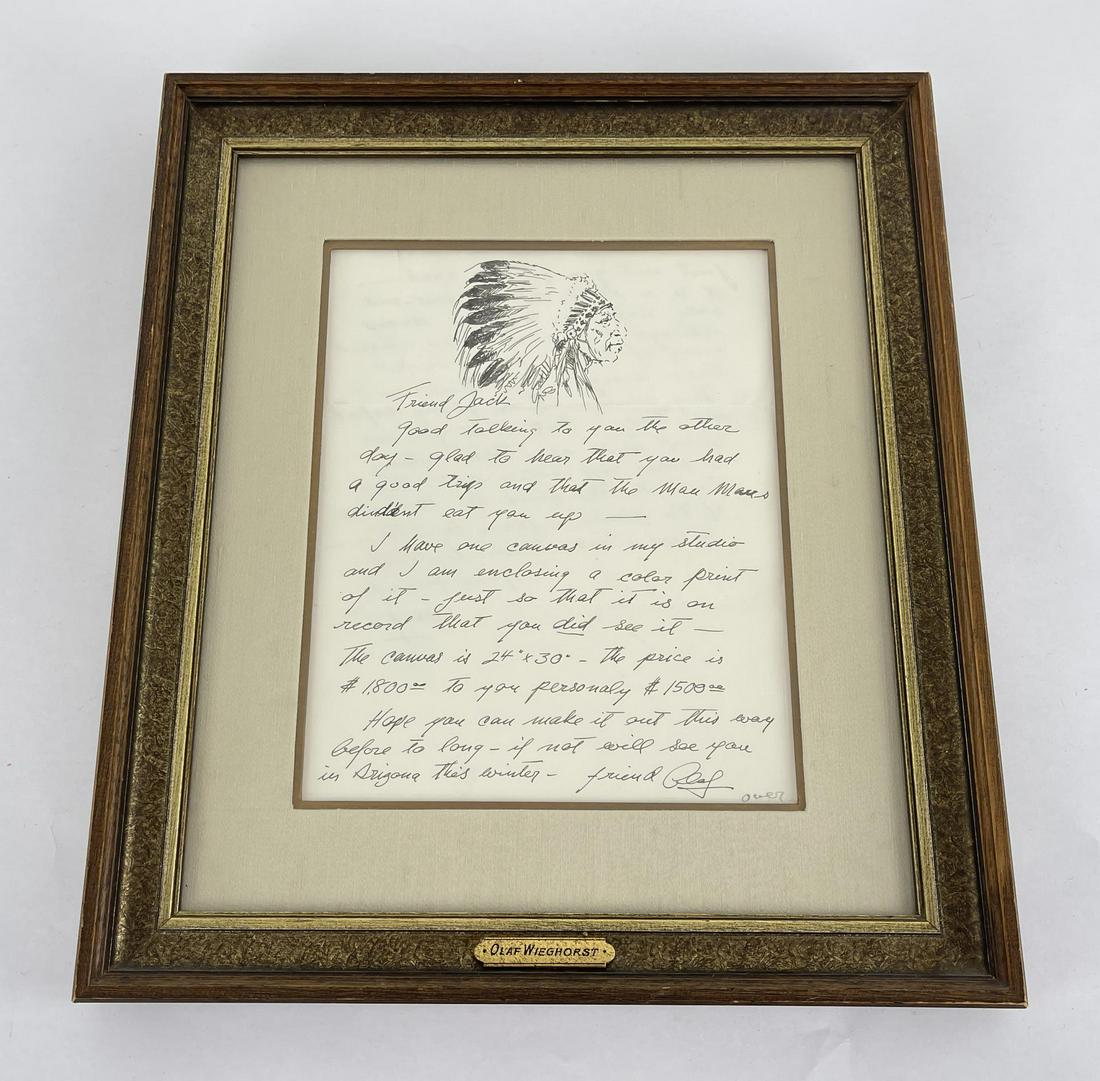 Friend Jack
good talking to you the other
day - glad to hear that you had
a good trip and that the Mau Maus
didn't eat you up —
I have one canvas in my studio
and I am enclosing a color print
of it - just so that it is on
record that you did see it —
The canvas is 24" x 30" - the price is
$ 1,800 00 to you personaly $ 1500 00
Hope you can make it out this way
before to long - if not will see you
in Arizona this winter - friend Olaf
over
• OLAF WIEGHORST •